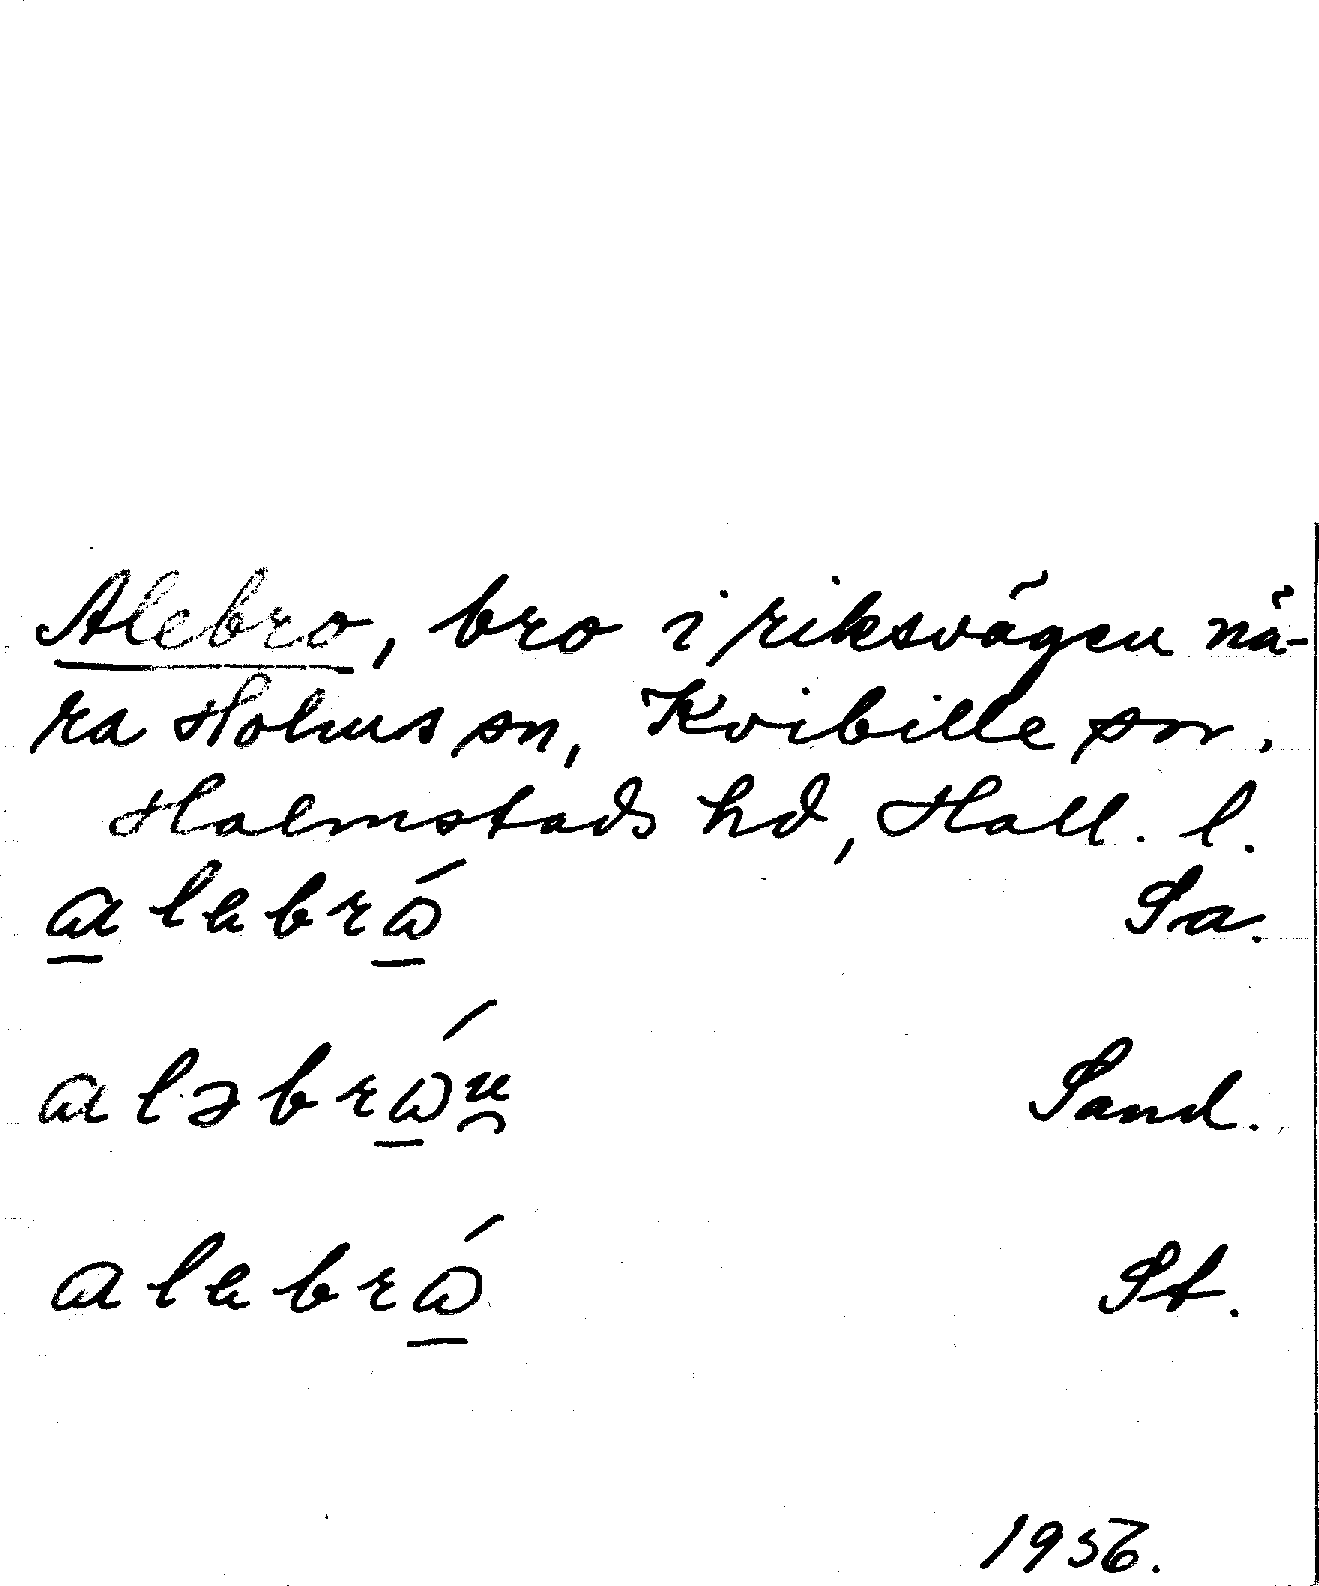 Alebro, bro i riksvägen nä-
ra Holms sn, Kvibille sn.
Halmstads hd, Hall. l.
alebró Sa.
aləbró Sand.
alebró St.
1936.